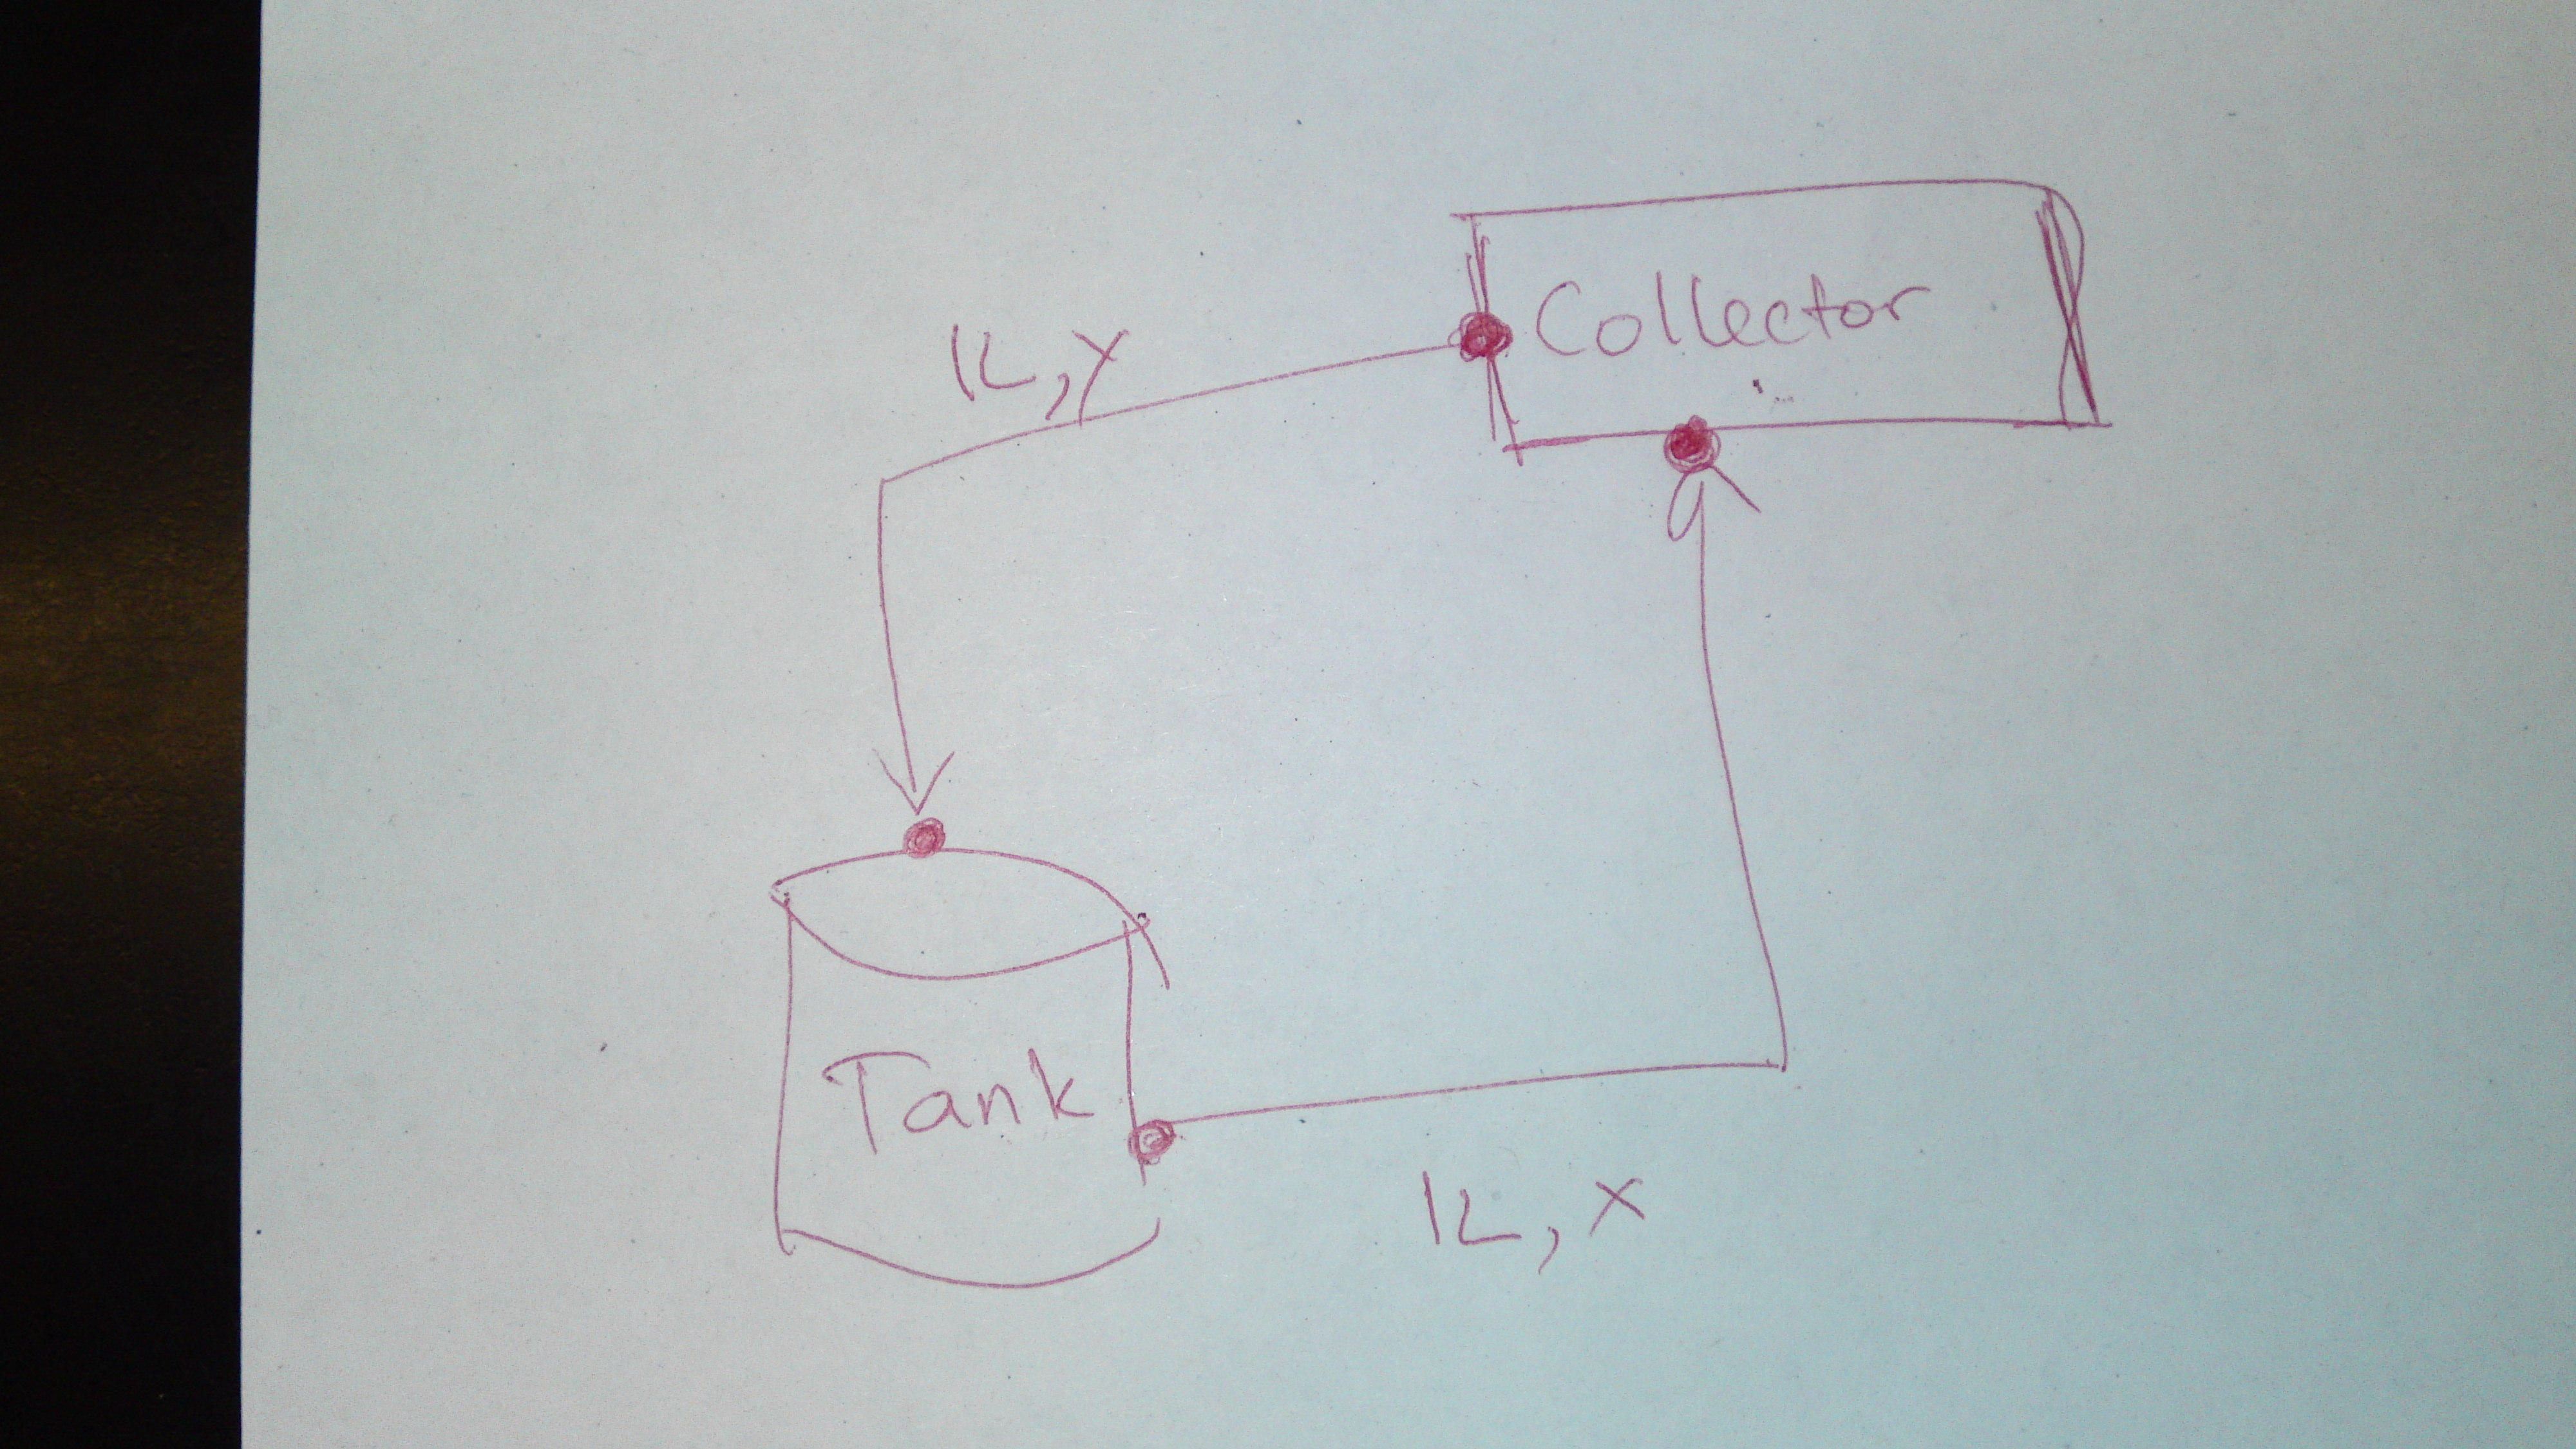 Collector
1L, Y
Tank
1L, X